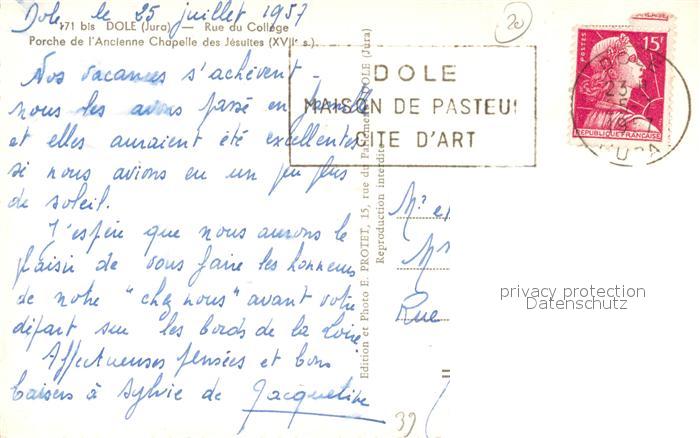 Dole le 25 juillet 1957
171 bis DOLE (Jura) — Rue du Collège
Porche de l'Ancienne Chapelle des Jésuites (XVIIe s.)
Nos vacances s'achèvent -
nous les avons passé en famille
et elles auraient été excellentes
si nous avions eu un peu plus
de soleil.
J'espère que nous aurons le
plaisir de vous faire les honneurs
de notre "chez nous" avant votre
départ sur les bords de la Loire
Affectueuses pensées et bons
baisers à Sylvie de Jacqueline
Edition et Photo E. PROTET, 15, rue du Parlement, DOLE (Jura)
Reproduction interdite
20
DOLE
MAISON DE PASTEU
CITE D'ART
POSTES
15F
REPUBLIQUE FRANÇAISE
23
5
1957
JURA
Mr et
M
Rue
privacy protection
Datenschutz
39